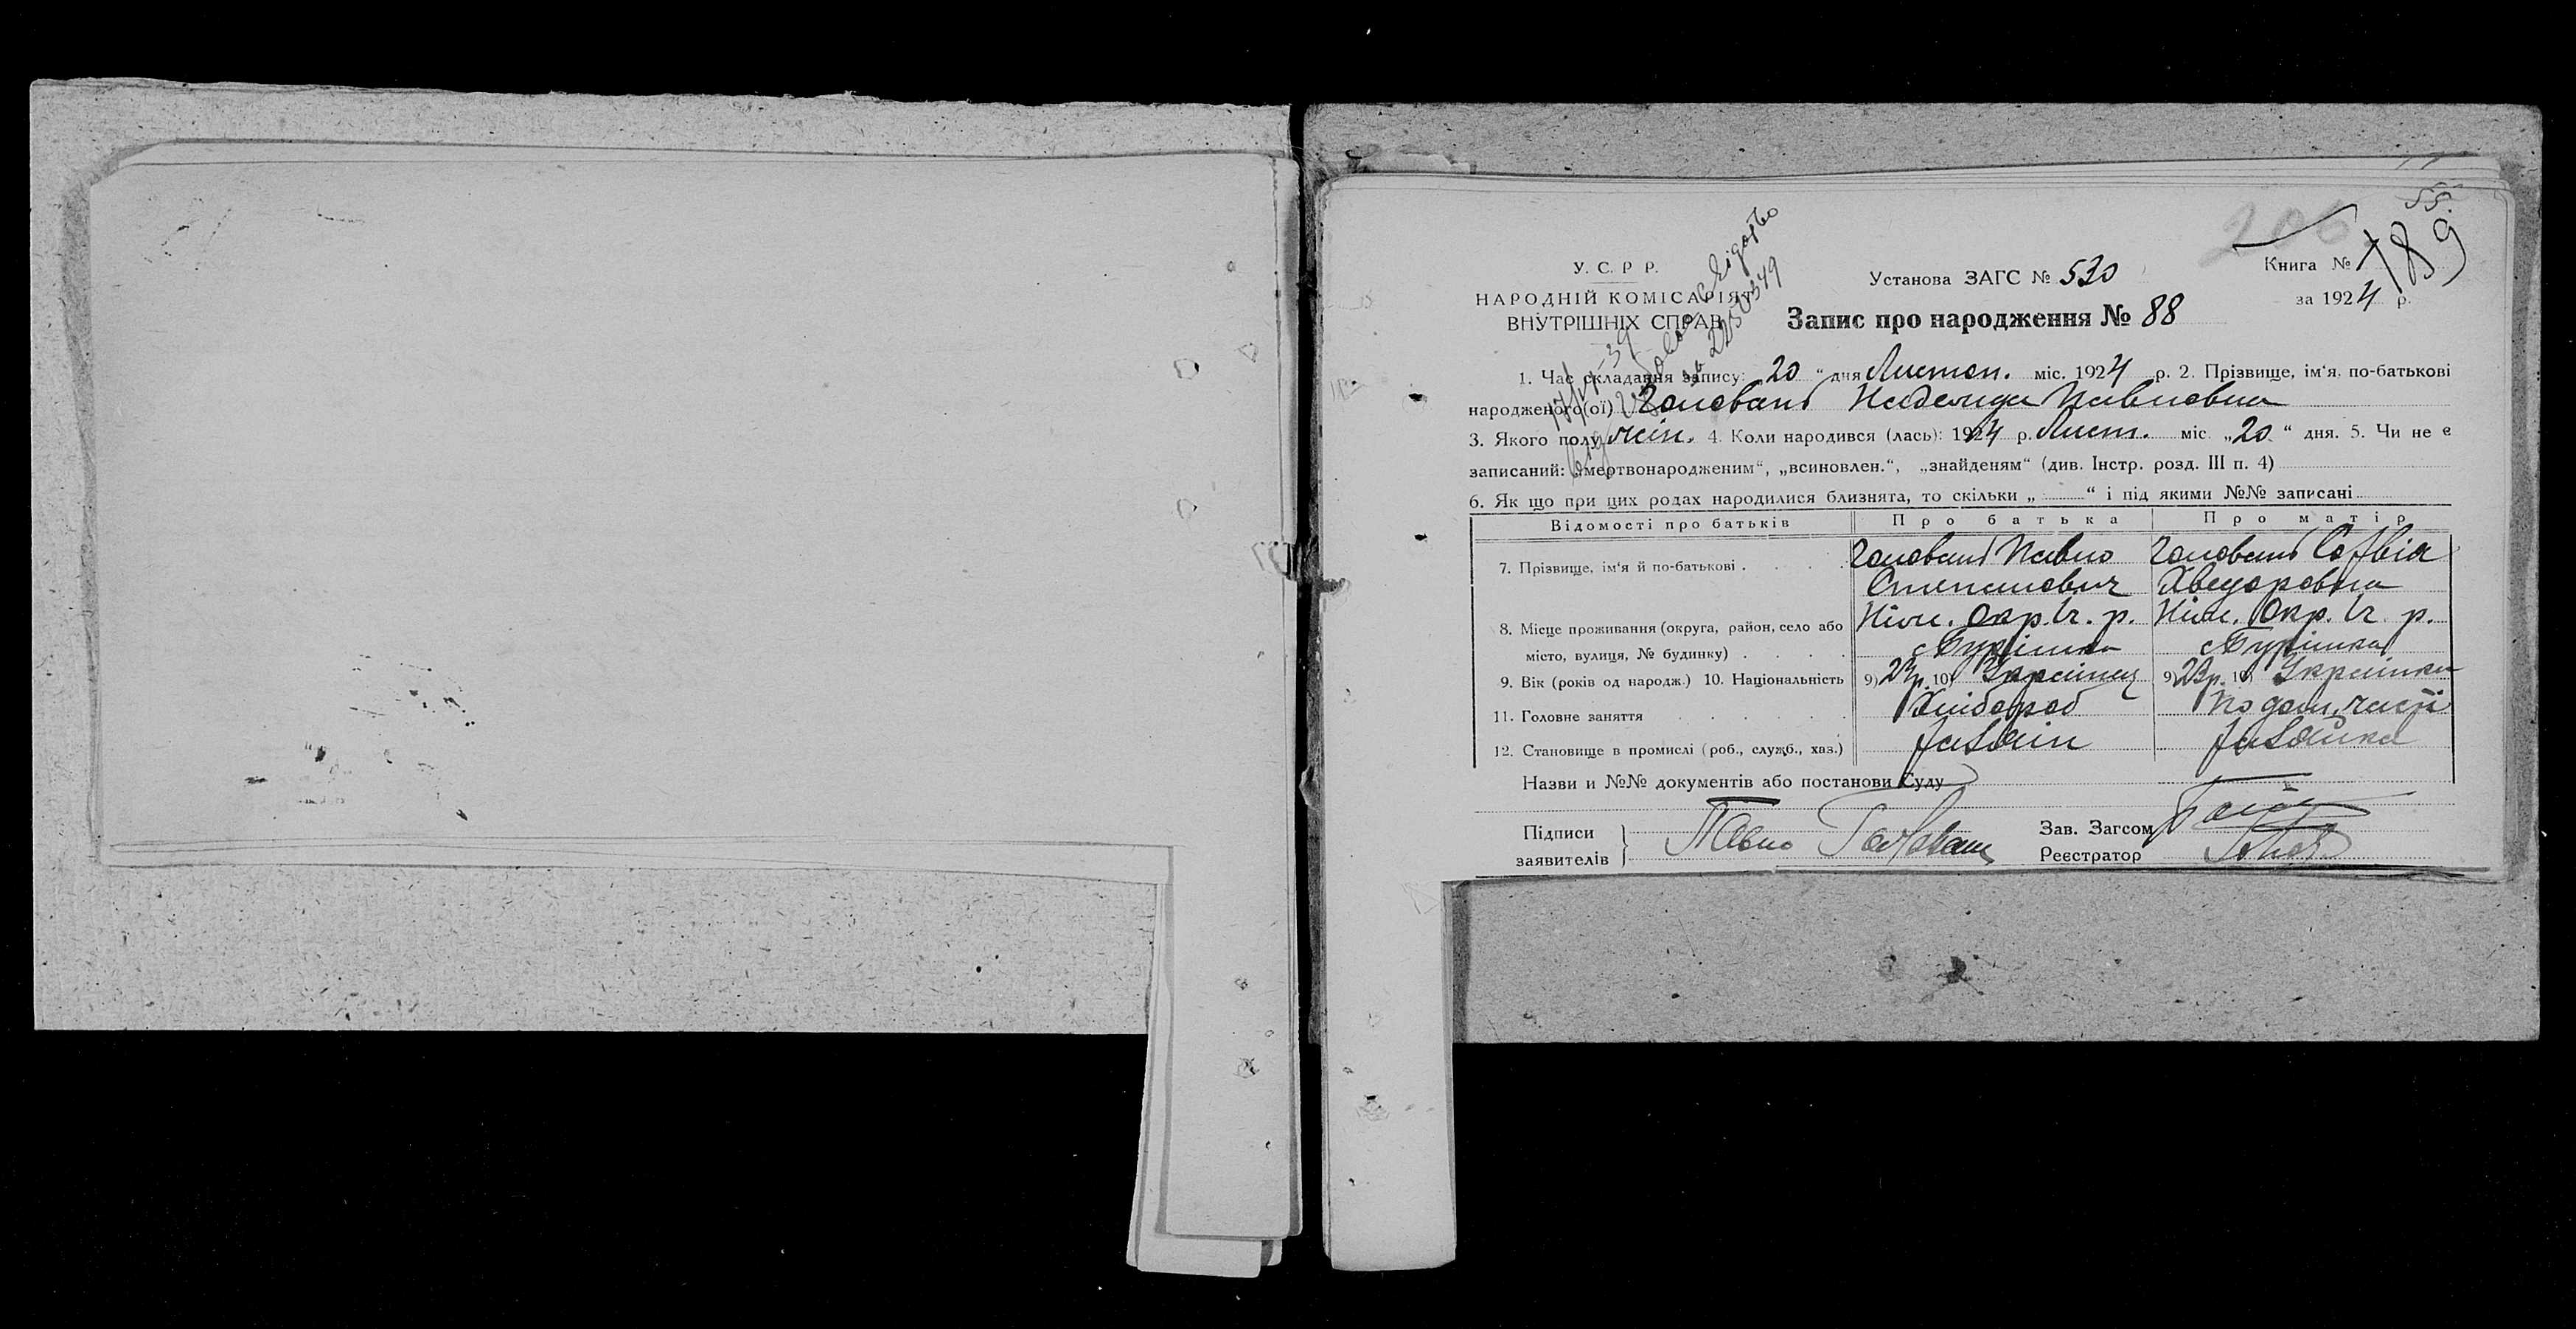 55
189
У. С. Р Р.
НАРОДНІЙ КОМІСАРІЯТ
ВНУТРІШНІХ СПРАВ
Установа ЗАГС № 530
Книга № 1
за 1924 р.
Запис про народження № 88
1. Час складання запису: 20 “ дня Листоп. міс. 1924 р. 2. Прізвище, ім‘я, по-батькові
народженого(ої) Голован Надежда Павловна
3. Якого полу жін. 4. Коли народився (лась): 1924 р. Лист. міс. „20“ дня. 5. Чи не є
записаний: „мертвонародженим“, „всиновлен.“, „знайденям“ (див. Інстр. розд. III п. 4)
6. Як що при цих родах народилися близнята, то скільки „ “ і під якими №№ записані
Відомості про батьків Про батька Про матір
7. Прізвище, ім‘я й по-батькові . . . . Голован Павло Голован Софвія
Степанович Хведоровна
8. Місце проживання (округа, район, село або Ніж. Окр. Іч. р. Ніж. Окр. Іч. р.
місто, вулиця, № будинку) . . . .
9. Вік (років од народж.) 10. Національність 9) р. 10) Українец 9) 23р. 10) Українка
11. Головне заняття . . . . . . Хлібороб По дом. части
12. Становище в промислі (роб., служб., хаз.) Хазяін Хазяйка
Назви и №№ документів або постанови Суду
Підписи
заявителів
Павло Голован
Зав. Загсом
Реєстратор